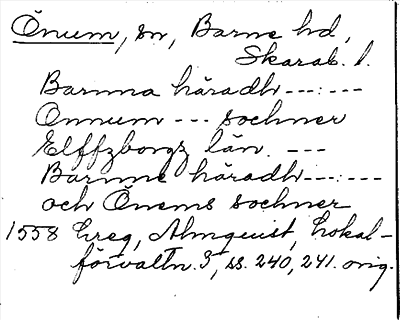 Önum, sn, Barne hd,
Skarab. l.
Barnna häradh ---:---
Onnum --- sochner
Elffzborgz län. ---
Barnne häradh---:---
och Önems sochner
1558 Greg, Almquist, Lokal-
förvaltn. 3, ss. 240, 241. orig.